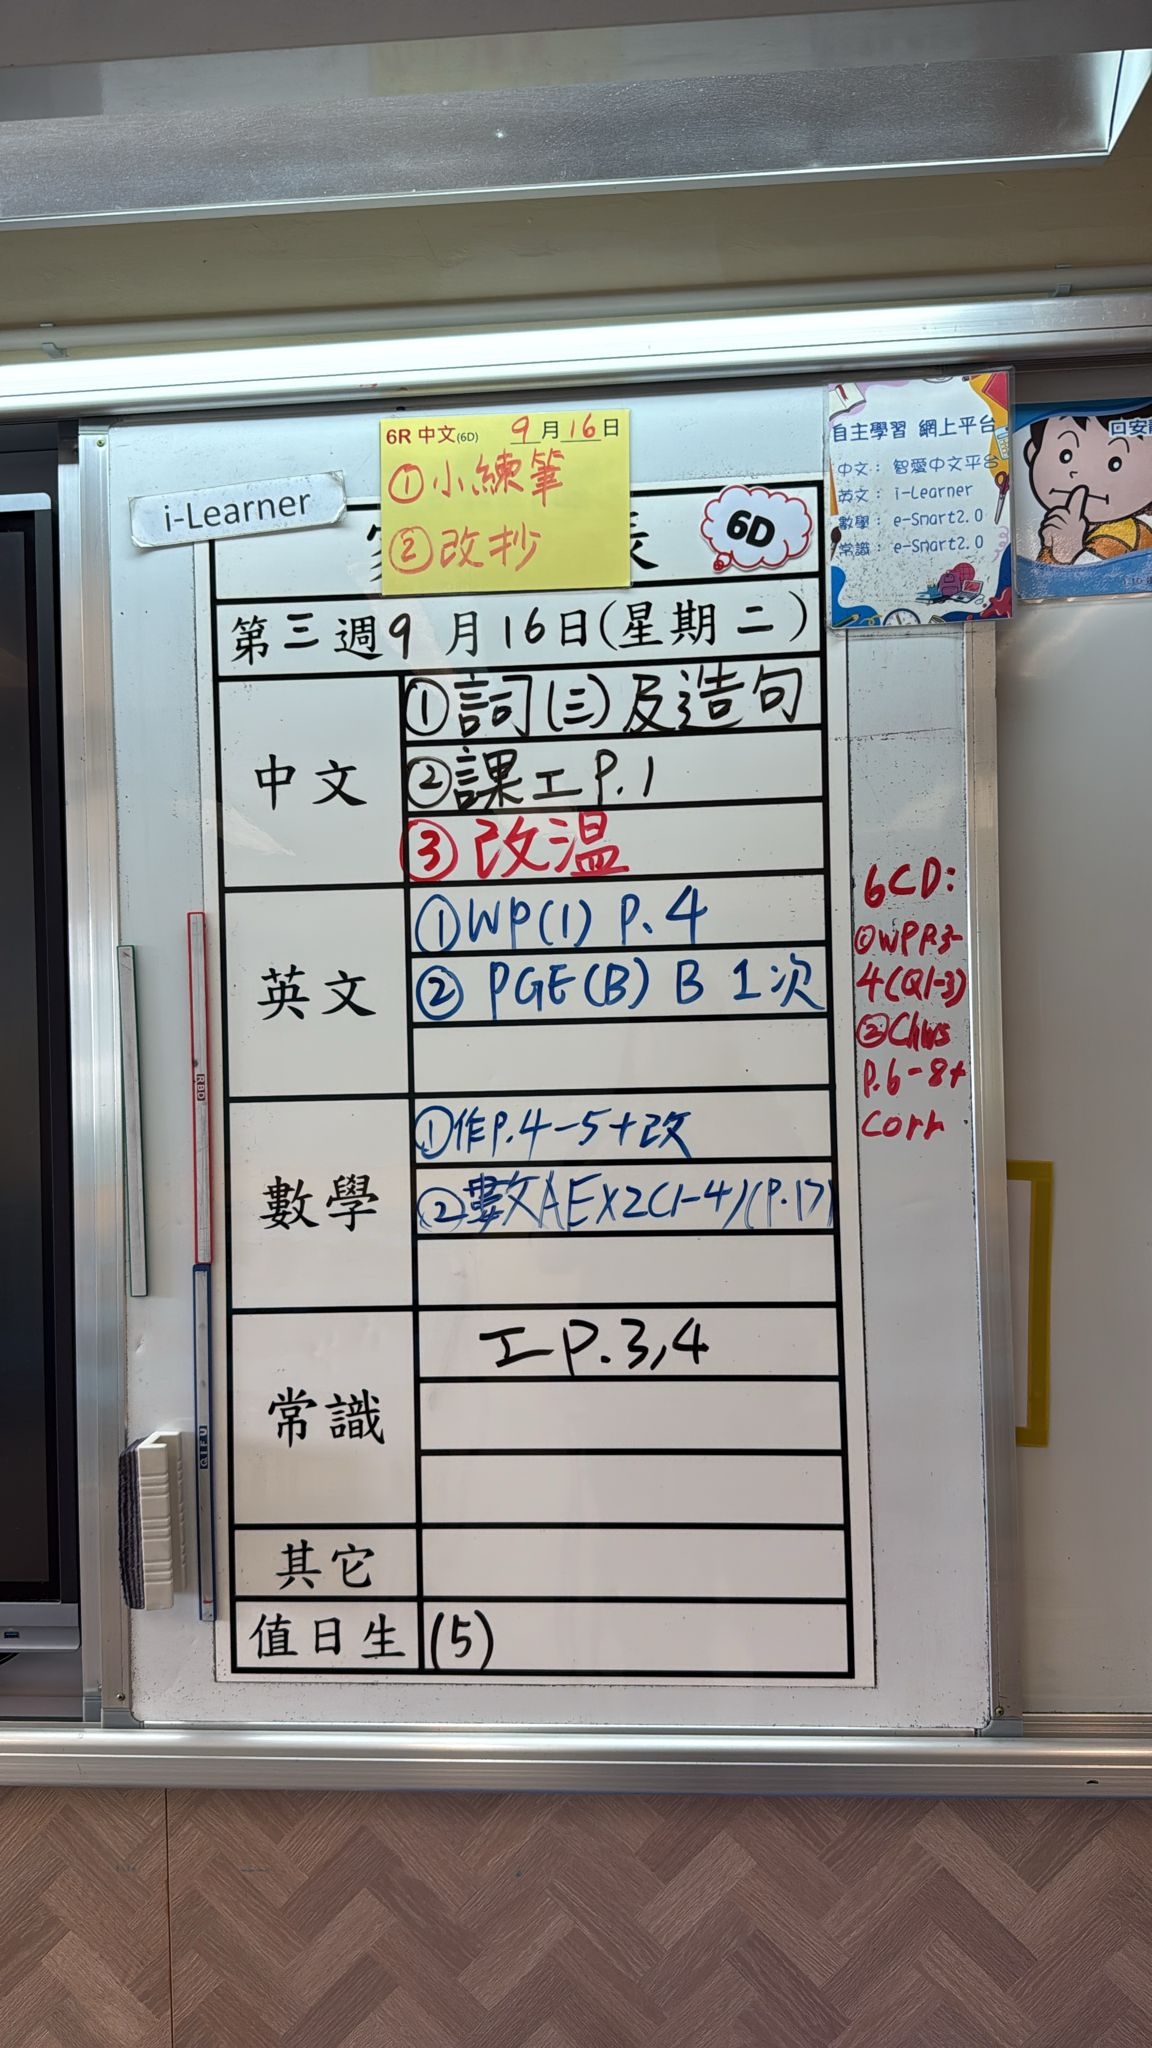 6R 中文(6D) 9月16日
①小練筆
②改抄
i-Learner
6D
自主學習 網上平台
中文：智愛中文平台
英文：i-Learner
數學：e-Smart2.0
常識：e-Smart2.0
第三週9月16日(星期二)
中文
①詞(三)及造句
②課工P.1
③改溫
英文
①WP(1) P.4
②PGE(B) B 1次
數學
①作P.4-5+改
②數AEX2(1-4)(P.17)
常識
工P.3,4
其它
值日生
(5)
6CD:
①WP P.3-
4(Q1-3)
②Chws
P.6-8+
Corr